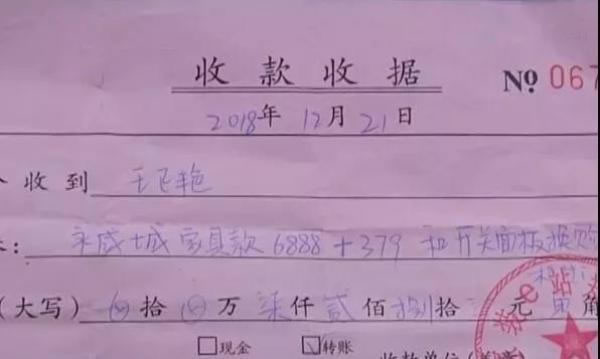 收款收据 № 067
2018年 12月 21日
收到 王飞艳
永威城家具款 6888+379 和开关面板换购
（大写） ⊗拾 ⊗万 柒仟 贰佰 捌拾 元 角
□现金 ☑转账
收款单位
e站